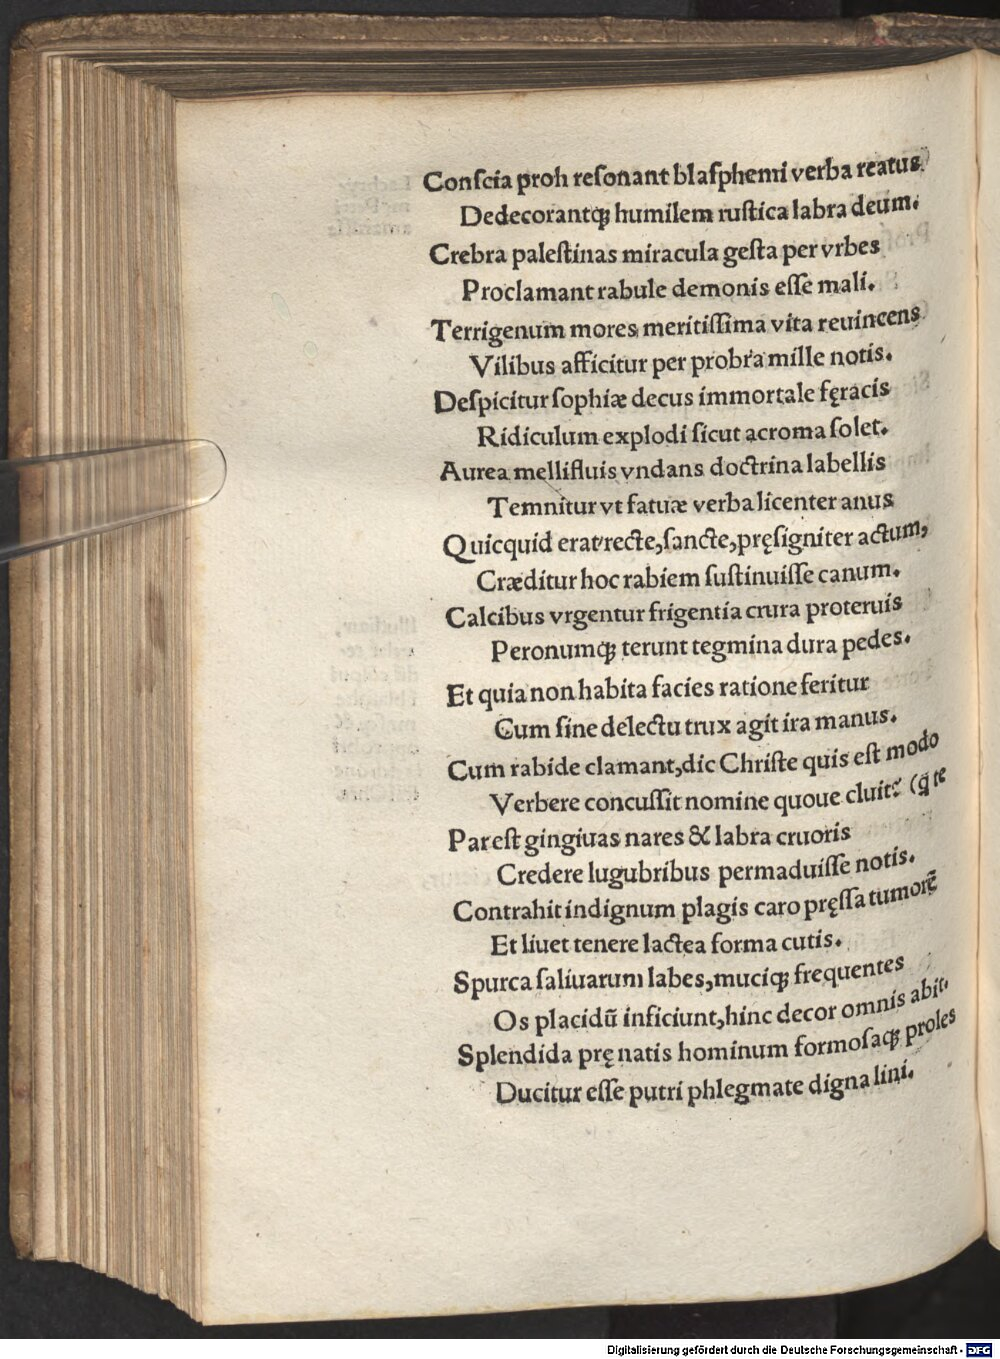 Conſcia proh reſonant blaſphemi verba reatus
Dedecorantqꝫ humilem ruſtica labra deum.
Crebra paleſtinas miracula geſta per vrbes
Proclamant rabule demonis eſſe mali.
Terrigenum mores meritiſſima vita reuincens
Vilibus afficitur per probra mille notis.
Deſpicitur ſophiæ decus immortale fęracis
Ridiculum explodi ſicut acroma ſolet.
Aurea mellifluis vndans doctrina labellis
Temnitur vt fatuæ verba licenter anus
Quicquid erat recte, ſancte, pręſigniter actum,
Cræditur hoc rabiem ſuſtinuiſſe canum.
Calcibus vrgentur frigentia crura proteruis
Peronumqꝫ terunt tegmina dura pedes.
Et quia non habita facies ratione feritur
Cum ſine delectu trux agit ira manus.
Cum rabide clamant, dic Chriſte quis eſt modo
Verbere concuſſit nomine quoue cluit? (q̃ te
Par eſt gingiuas nares & labra cruoris
Credere lugubribus permaduiſſe notis.
Contrahit indignum plagis caro pręſſa tumorẽ
Et liuet tenere lactea forma cutis.
Spurca ſaliuarum labes, muciqꝫ frequentes
Os placidũ inficiunt, hinc decor omnis abit.
Splendida prę natis hominum formoſaqꝫ proles
Ducitur eſſe putri phlegmate digna lini.
Digitalisierung gefördert durch die Deutsche Forschungsgemeinschaft - DFG